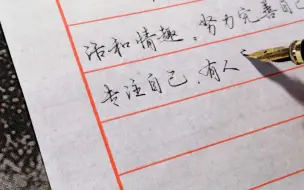 活和情趣。努力完善自己
专注自己,有人